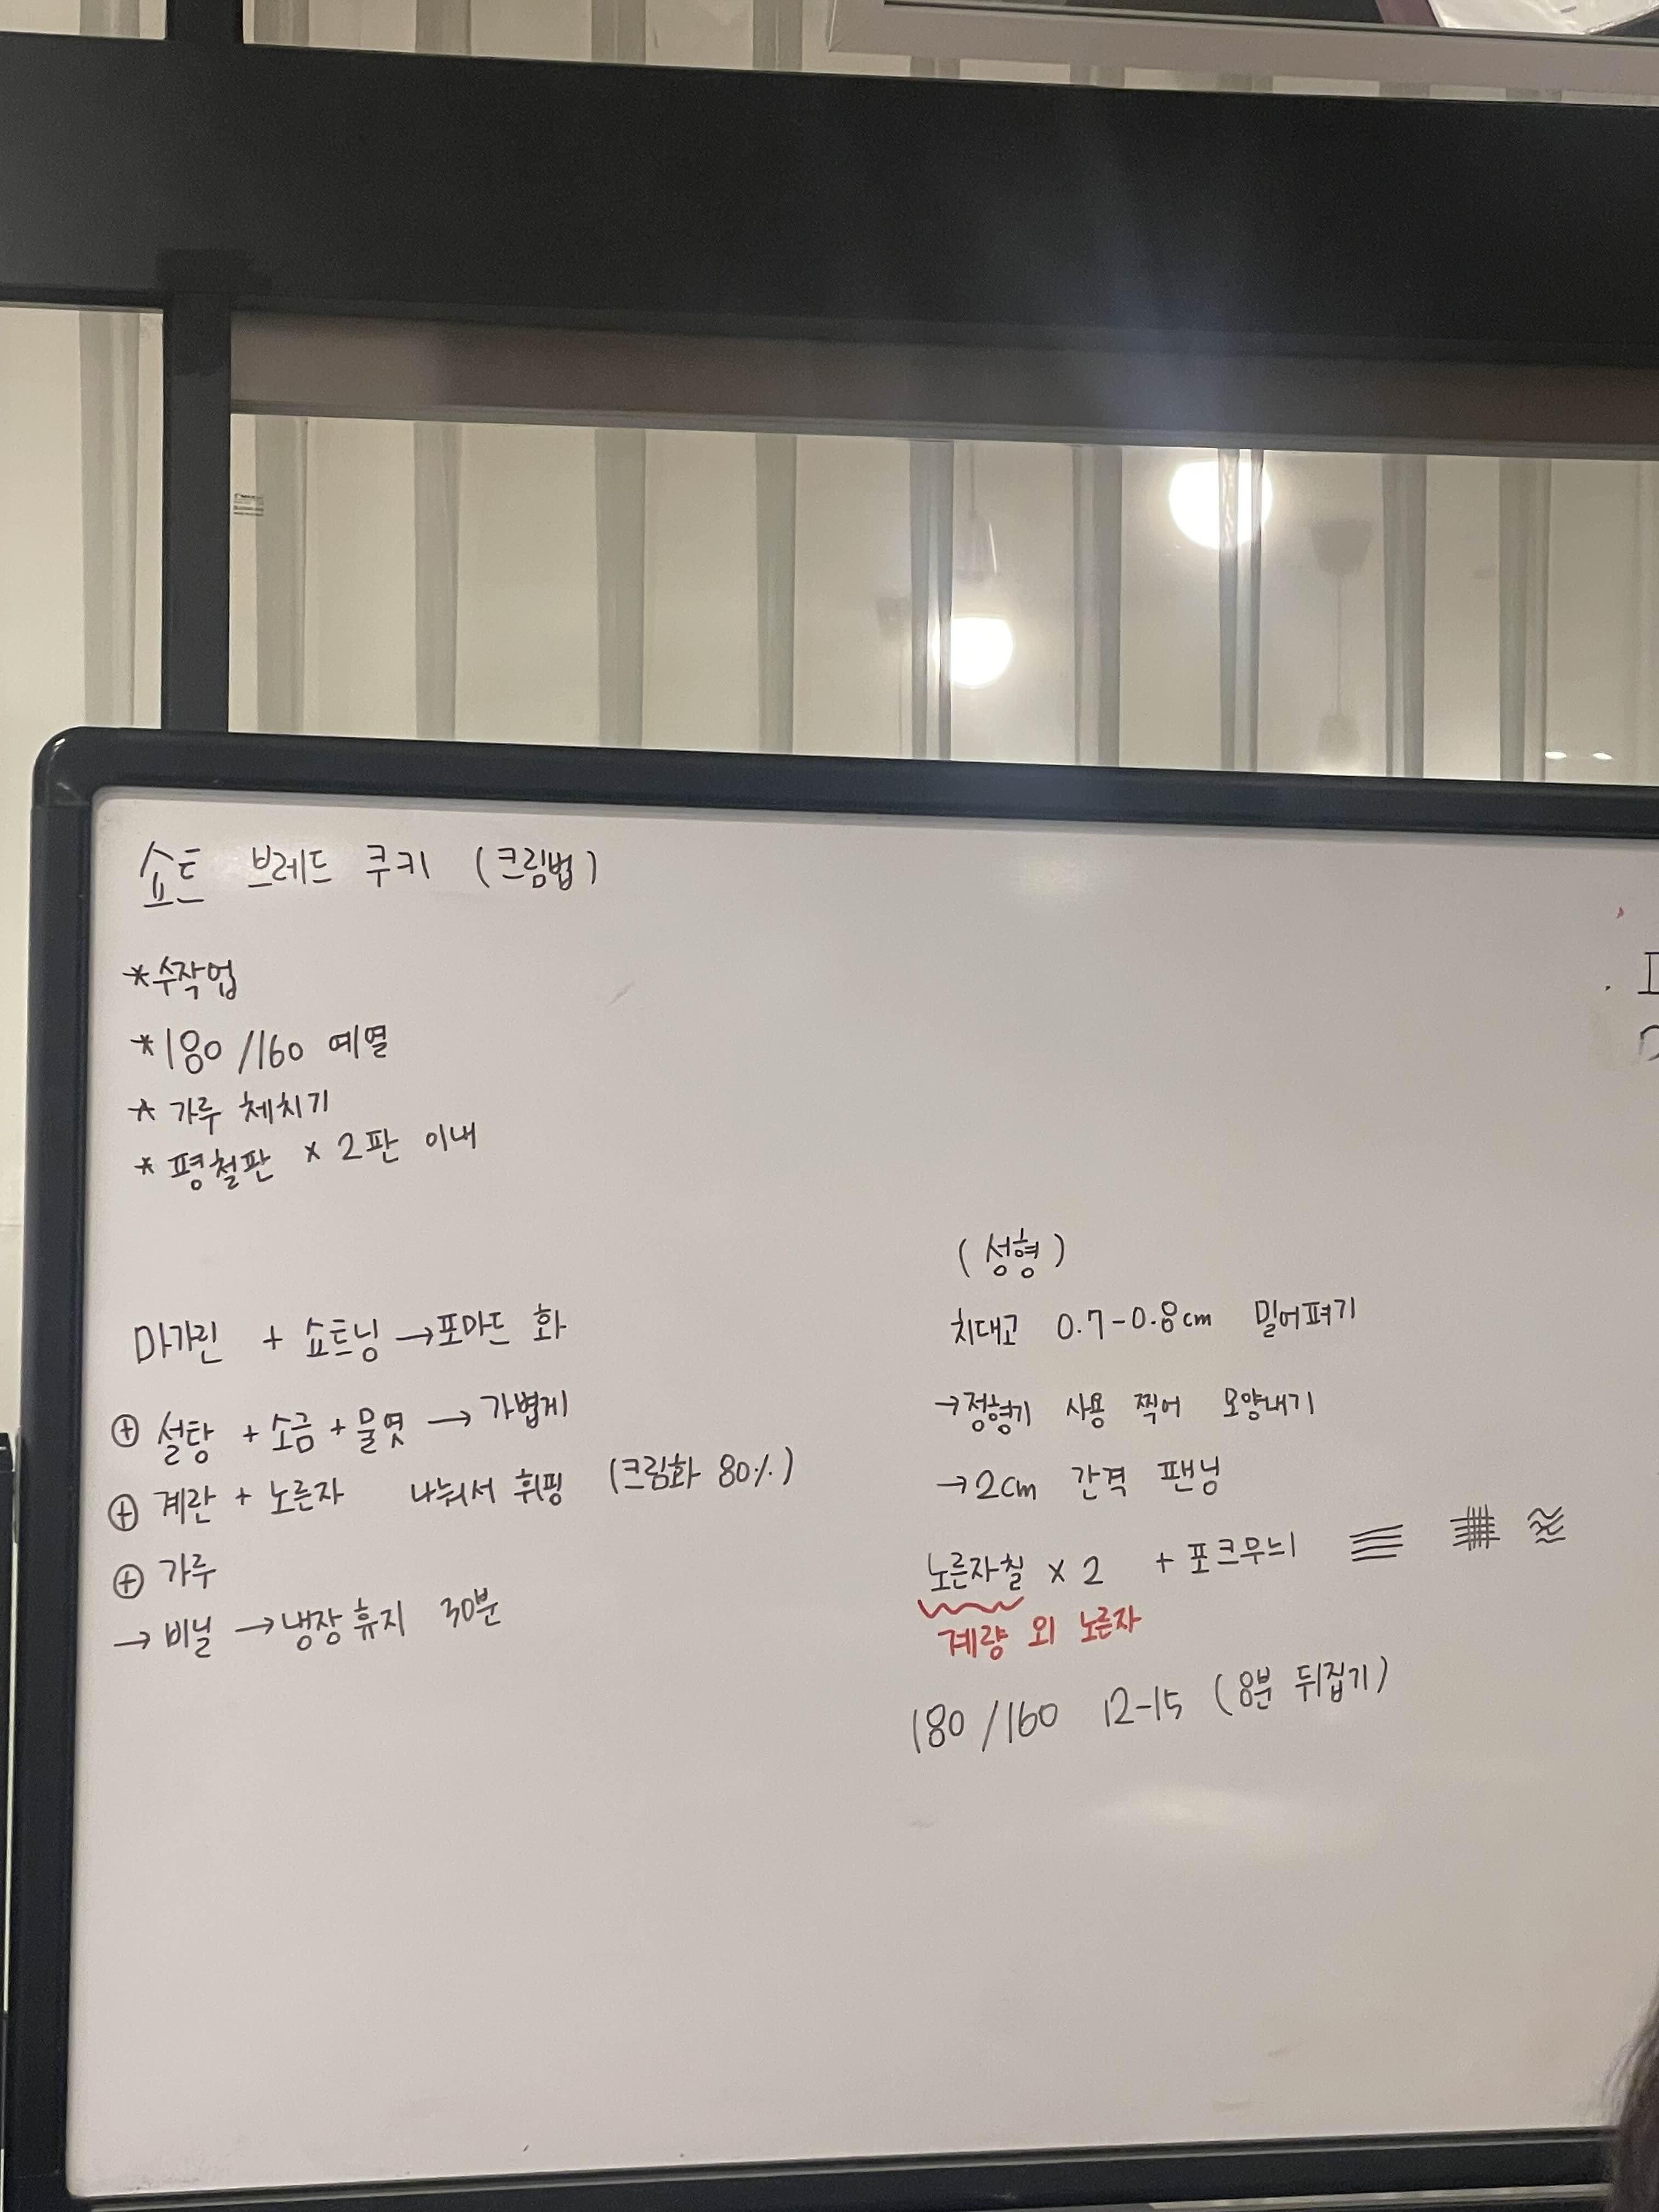 쇼트 브레드 쿠키 (크림법)
*수작업
*180/160 예열
* 가루 체치기
* 평철판 x 2판 이내
마가린 + 쇼트닝 → 포마드 화
⊕ 설탕 + 소금 + 물엿 → 가볍게
⊕ 계란 + 노른자 나눠서 휘핑 (크림화 80%)
⊕ 가루
→ 비닐 → 냉장휴지 30분
(성형)
치대고 0.7-0.8cm 밀어펴기
→정형기 사용 찍어 모양내기
→2cm 간격 팬닝
노른자칠 x 2 + 포크무늬
계량 외 노른자
180/160 12-15 (8분 뒤집기)